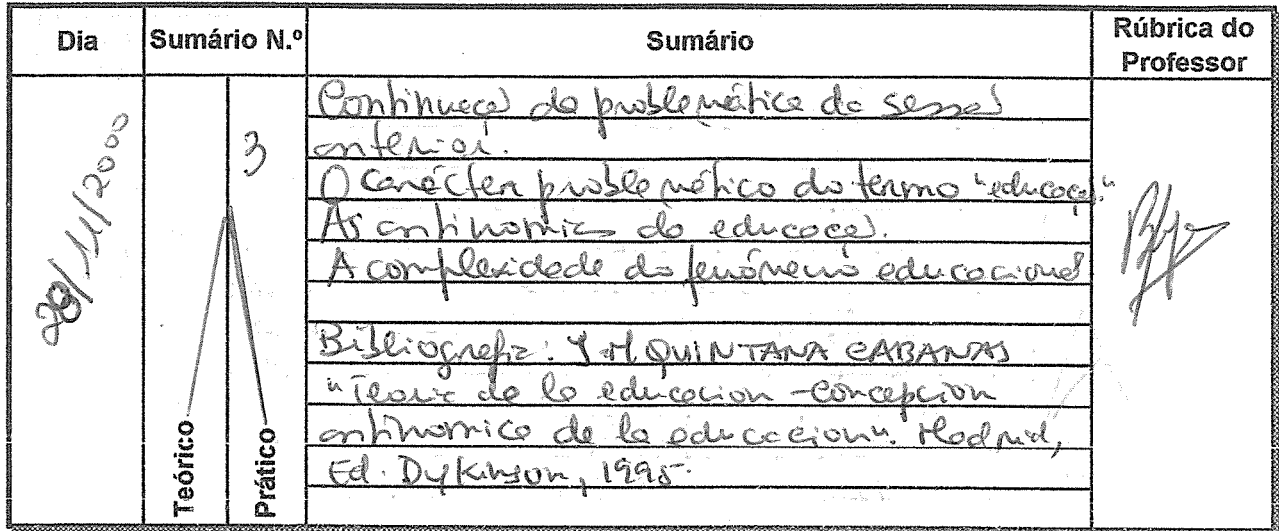 Dia
Sumário N.º
Sumário
Rúbrica do
Professor
28/11/2000
3
Continuação da problemática da sessão
anterior.
O carácter problemático do termo "educação."
As antinomias da educação.
A complexidade do fenómeno educacional
Bibliografia: J. M. QUINTANA CABANAS
"Teoria de la educacion - concepcion
antinomica de la educacion". Madrid,
Ed. Dykinson, 1995.
Teórico
Prático